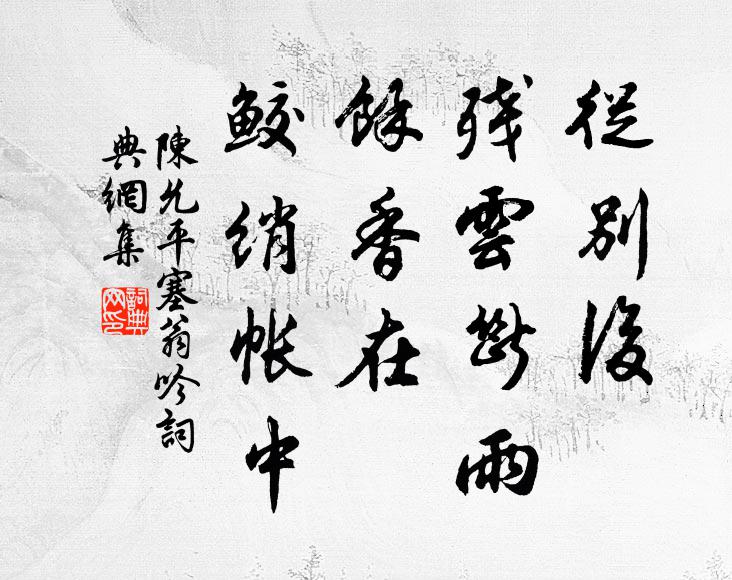 從別後
殘雲斷雨
餘香在
鮫綃帳中
陳允平塞翁吟詞
典網集
詞典網印